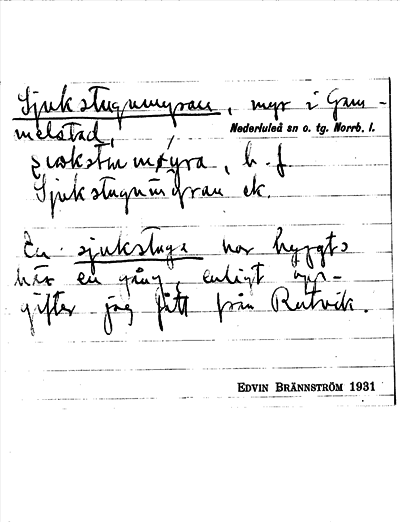 Sjukstugumyran, myr i Gam-
melstad,
Nederluleå sn o. tg. Norrb. l.
b. f.
Sjukstugumyran ek.
En sjukstuga har byggts
här en gång, enligt upp-
gifter jag fått från Rutvik.
EDVIN BRÄNNSTRÖM 1931